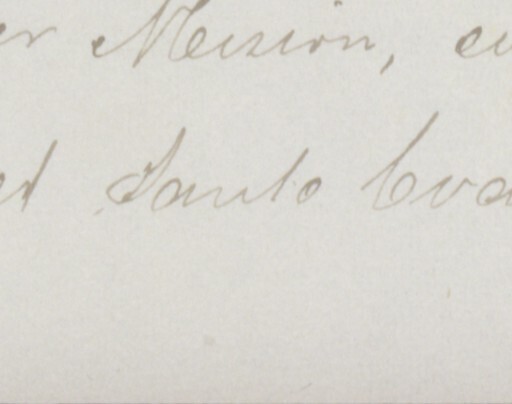 er Mision, en
el Santo Eva